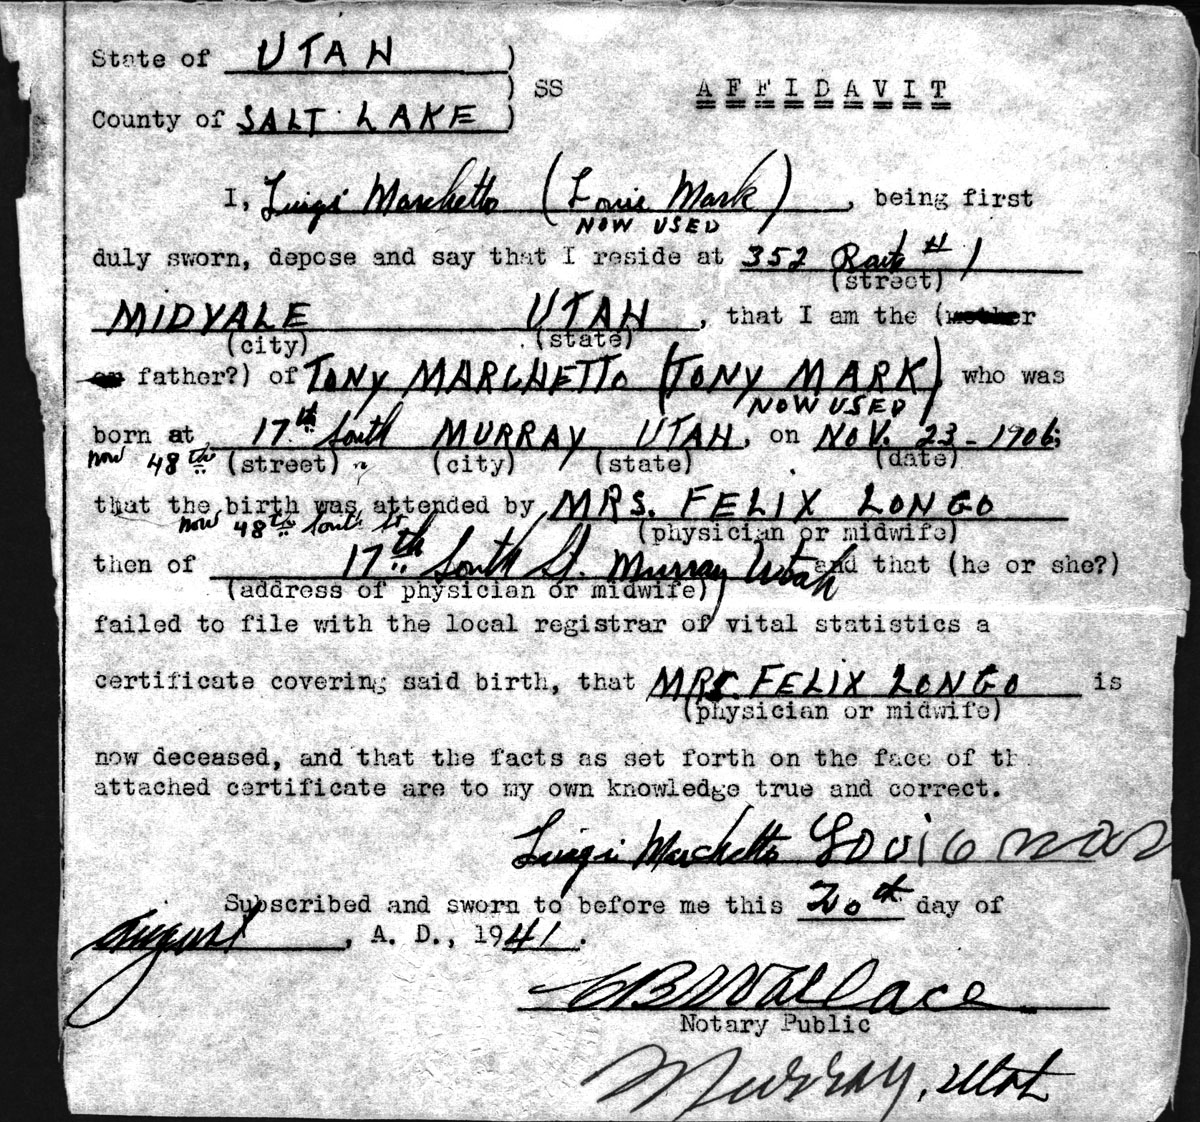 State of UTAH )
) SS AFFIDAVIT
County of SALT LAKE )
I, Luigi Marchetto (Louis Mark), being first
NOW USED
duly sworn, depose and say that I reside at 352 # 1
(street)
MIDVALE UTAH, that I am the (mother
(city) (state)
or father?) of TONY MARCHETTO (TONY MARK) who was
NOW USED
born at 17th South MURRAY UTAH, on NOV. 23-1906;
now 48th (street) (city) (state) (date)
that the birth was attended by MRS. FELIX LONGO
now 48th South St (physician or midwife)
then of 17th South St. Murray Utah and that (he or she?)
(address of physician or midwife)
failed to file with the local registrar of vital statistics a
certificate covering said birth, that MRS. FELIX LONGO is
(physician or midwife)
now deceased, and that the facts as set forth on the face of th
attached certificate are to my own knowledge true and correct.
Luigi Marchetto
Subscribed and sworn to before me this 20th day of
August, A. D., 1941.
Wallace
Notary Public
Murray, Utah